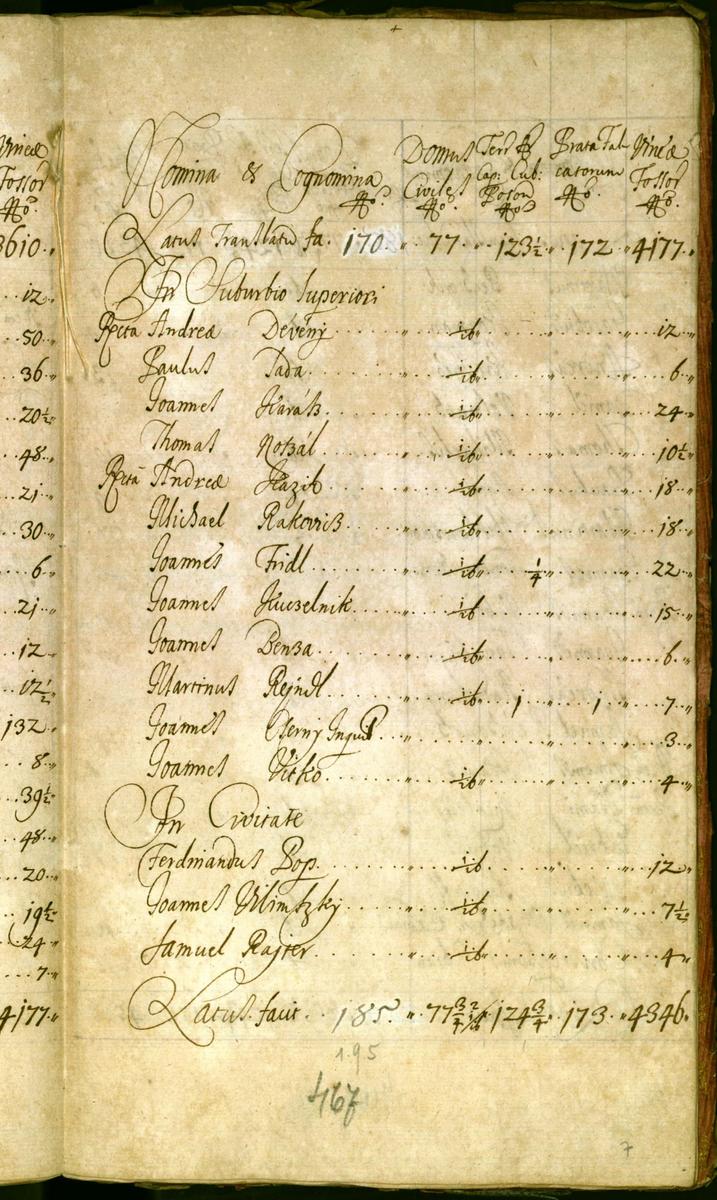 Vineæ
Fossor
No
3610
12
50
36
20½
48
21
30
6
21
12
12½
132
8
39½
48
20
19½
24
7
4177
Nomina & Cognomina No
Domus Civiles No
Terr Cap: Cub: Poson No
Prata Falcatorum No
Vineæ Fossor No
Latus Translatũ fa. 170 „ 77 „ 123½ „ 172 „ 4177 „
In Suburbio Superiori
Recta Andreæ Devéný „ 1/16 „ „ 12 „
Paulus Tada „ 1/16 „ „ 6 „
Joannes „ 1/16 „ „ 24 „
Thomas „ 1/16 „ „ 10½
Recta Andreæ Hazib „ 1/16 „ „ 18 „
Michael „ 1/16 „ „ 18 „
Joannes Fridl „ 1/16 „ ¼ „ „ 22 „
Joannes Kuczelnik „ 1/16 „ „ 15 „
Joannes Benza „ 1/16 „ „ 6 „
Martinus Rejndl „ 1/16 „ 1 „ 1 „ 7 „
Joannes Cserny „ „ „ „ 3 „
Joannes Vitko „ 1/16 „ „ 4 „
In Civitate
Ferdinandus Pop „ 1/16 „ „ 12 „
Joannes „ 1/16 „ „ 7½
Samuel Rajter „ 1/16 „ „ 4 „
Latus facit 185 „ 77¾ „ 124¾ „ 173 „ 4346 „
195
467
7